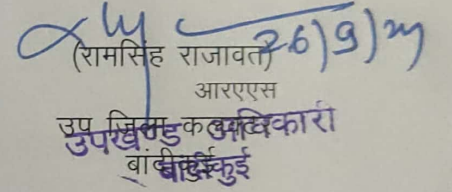 26/9/24
(रामसिंह राजावत)
आरएएस
उप जिला कलक्टर
उपखण्ड अधिकारी
बांदीकुई
बांदीकुई